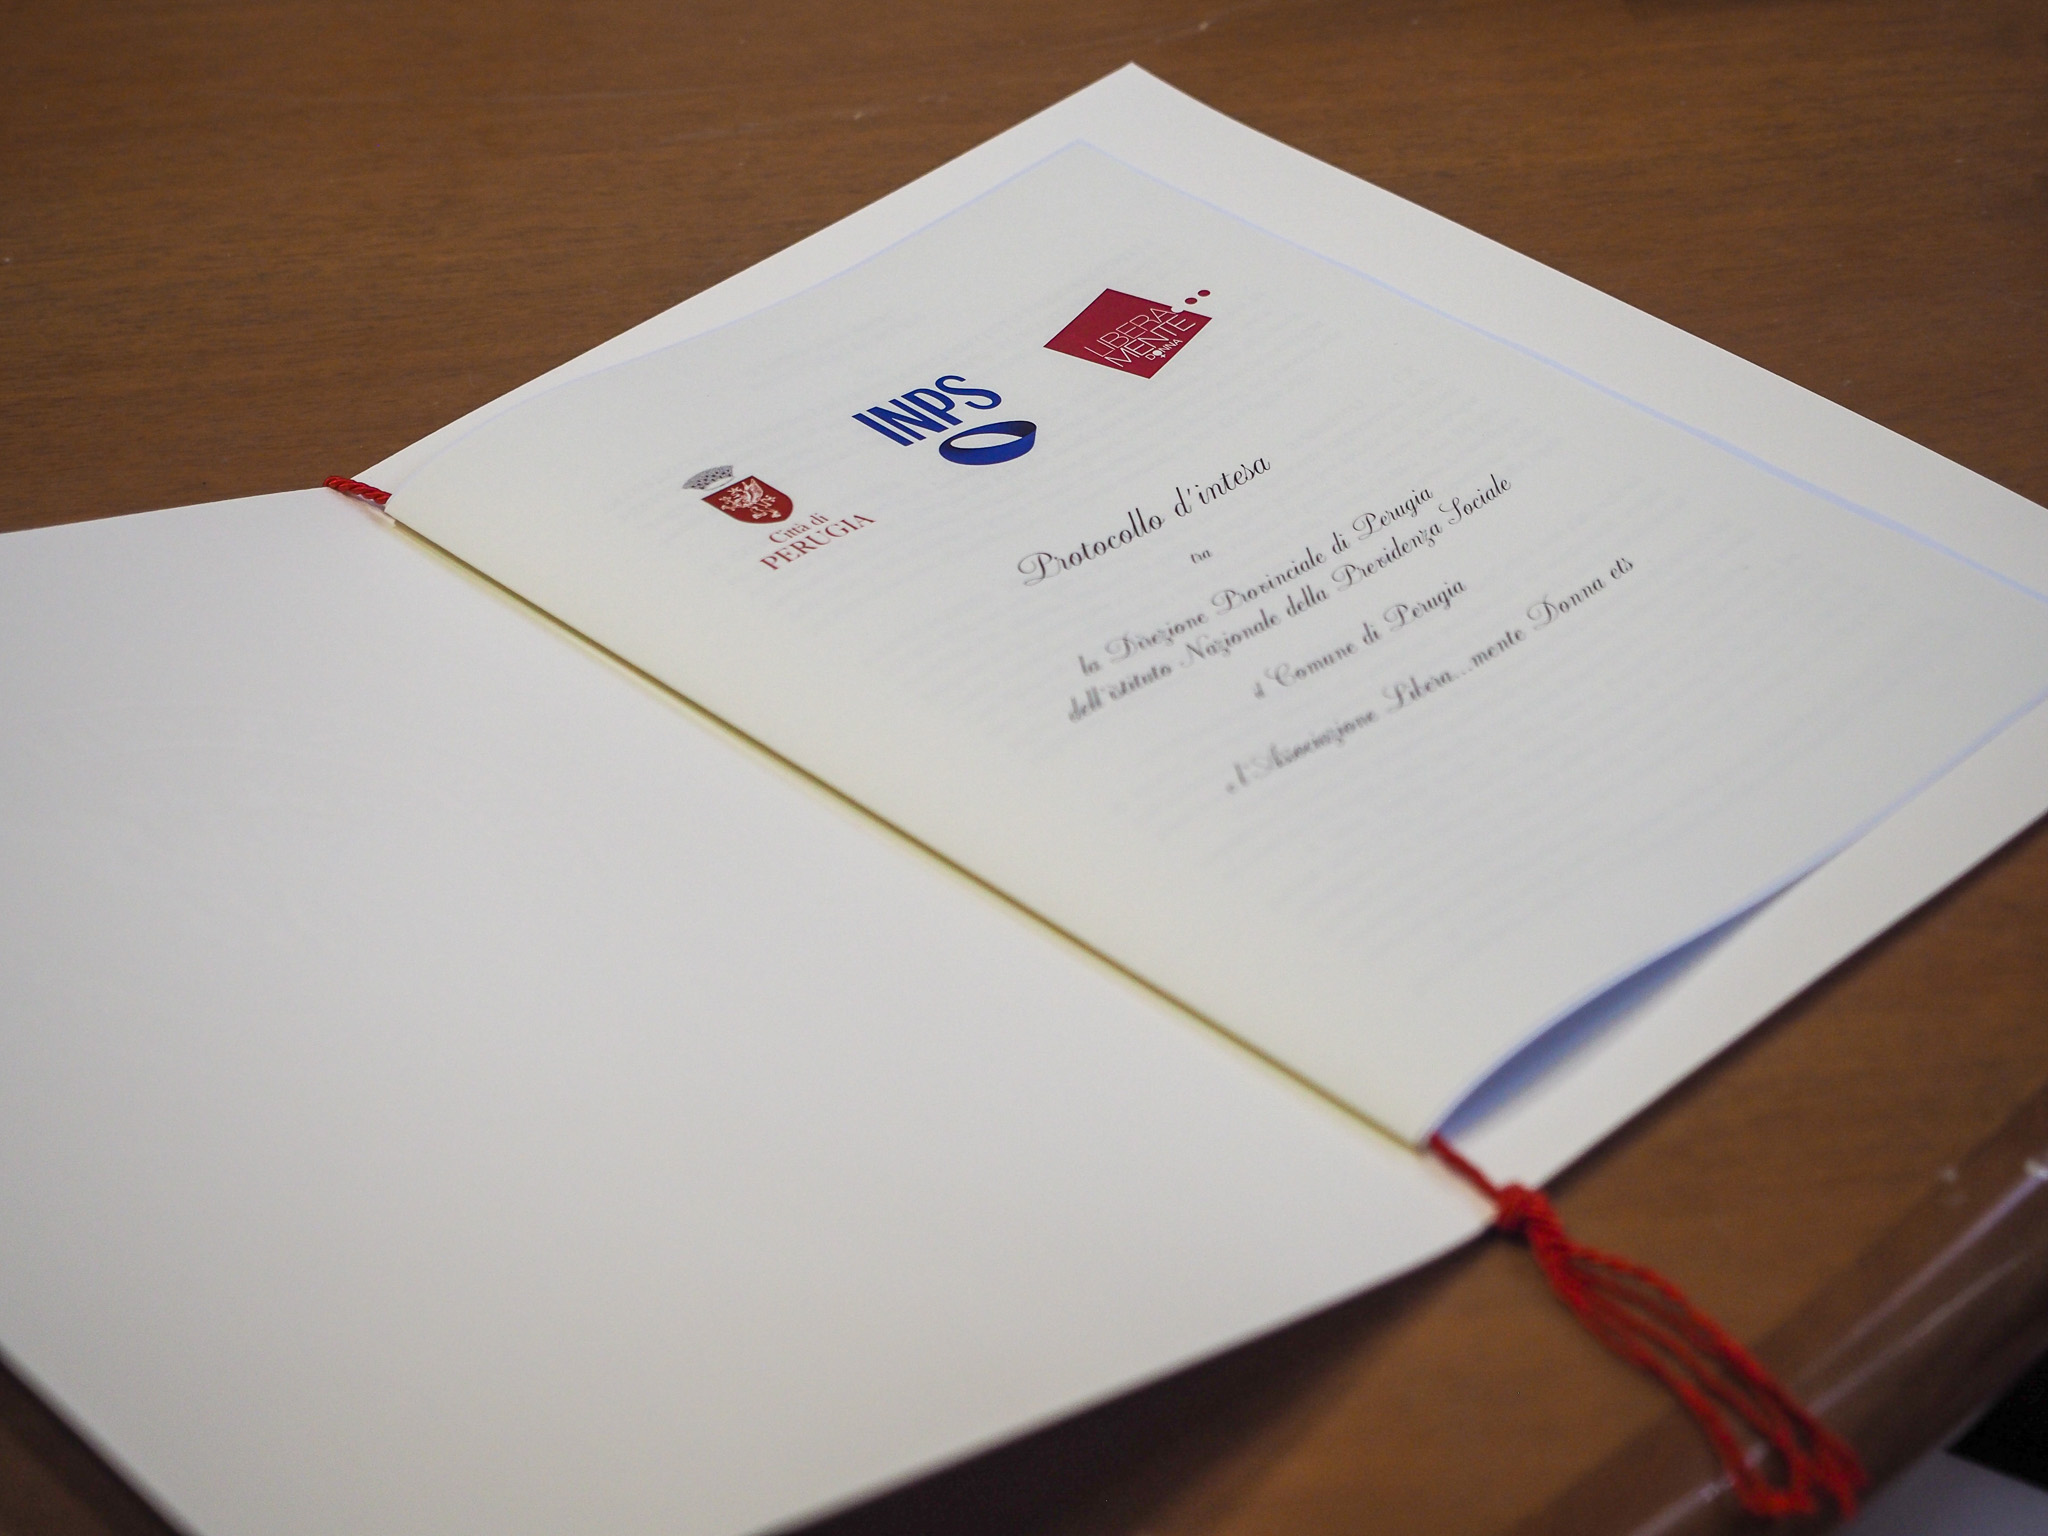 Città di
PERUGIA
INPS
LIBERA
MENTE
DONNA
Protocollo d'intesa
tra
la Direzione Provinciale di Perugia
dell'istituto Nazionale della Previdenza Sociale
il Comune di Perugia
e l'Associazione Libera...mente Donna ets